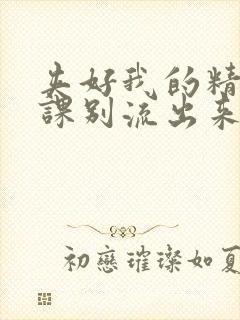 夹好我的精
課别流出来
初戀璀璨如夏